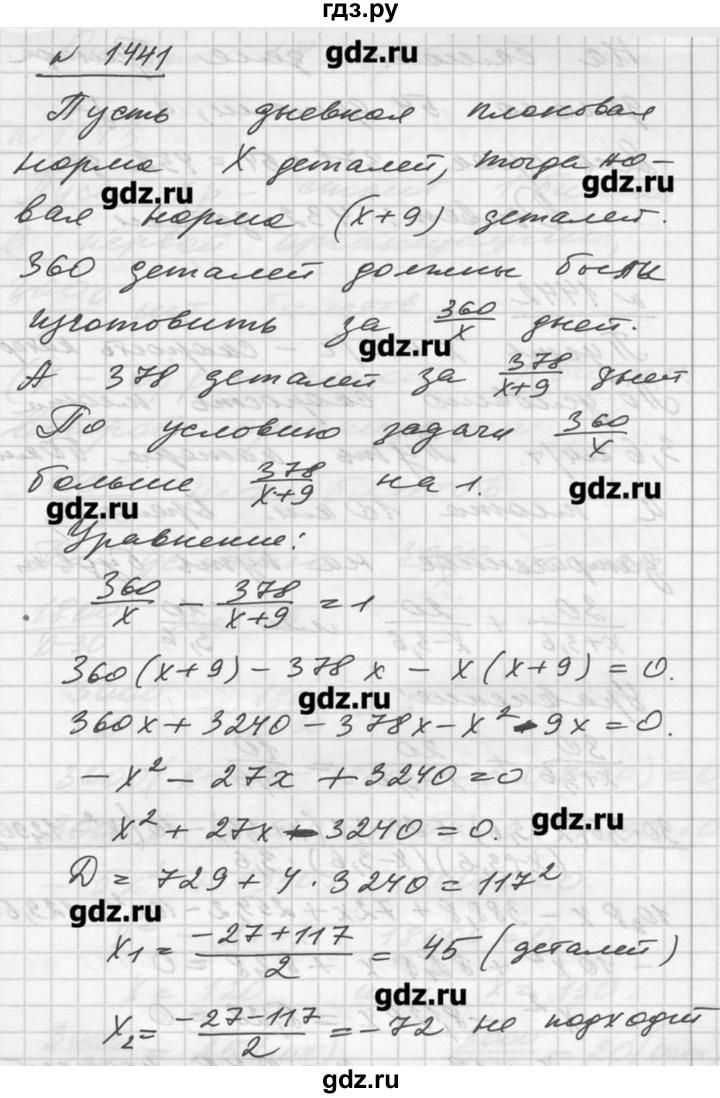 гдз.ру
gdz.ru
№ 1441
Пусть дневная плановая
норма X деталей, тогда но-
gdz.ru
gdz.ru
вая норма (x+9) деталей.
360 деталей должны были
изготовить за 360/x дней.
gdz.ru
А 378 деталей за 378/(x+9) дней
По условию задачи 360/x
больше 378/(x+9) на 1.
gdz.ru
gdz.ru
Уравнение:
360/x - 378/(x+9) = 1
360(x+9) - 378x - x(x+9) = 0.
gdz.ru
360x + 3240 - 378x - x² - 9x = 0.
- x² - 27x + 3240 = 0
x² + 27x - 3240 = 0.
gdz.ru
D = 729 + 4·3240 = 117²
gdz.ru
x₁ = (-27+117)/2 = 45 (деталей)
gdz.ru
x₂ = (-27-117)/2 = -72 не подходит
gdz.ru